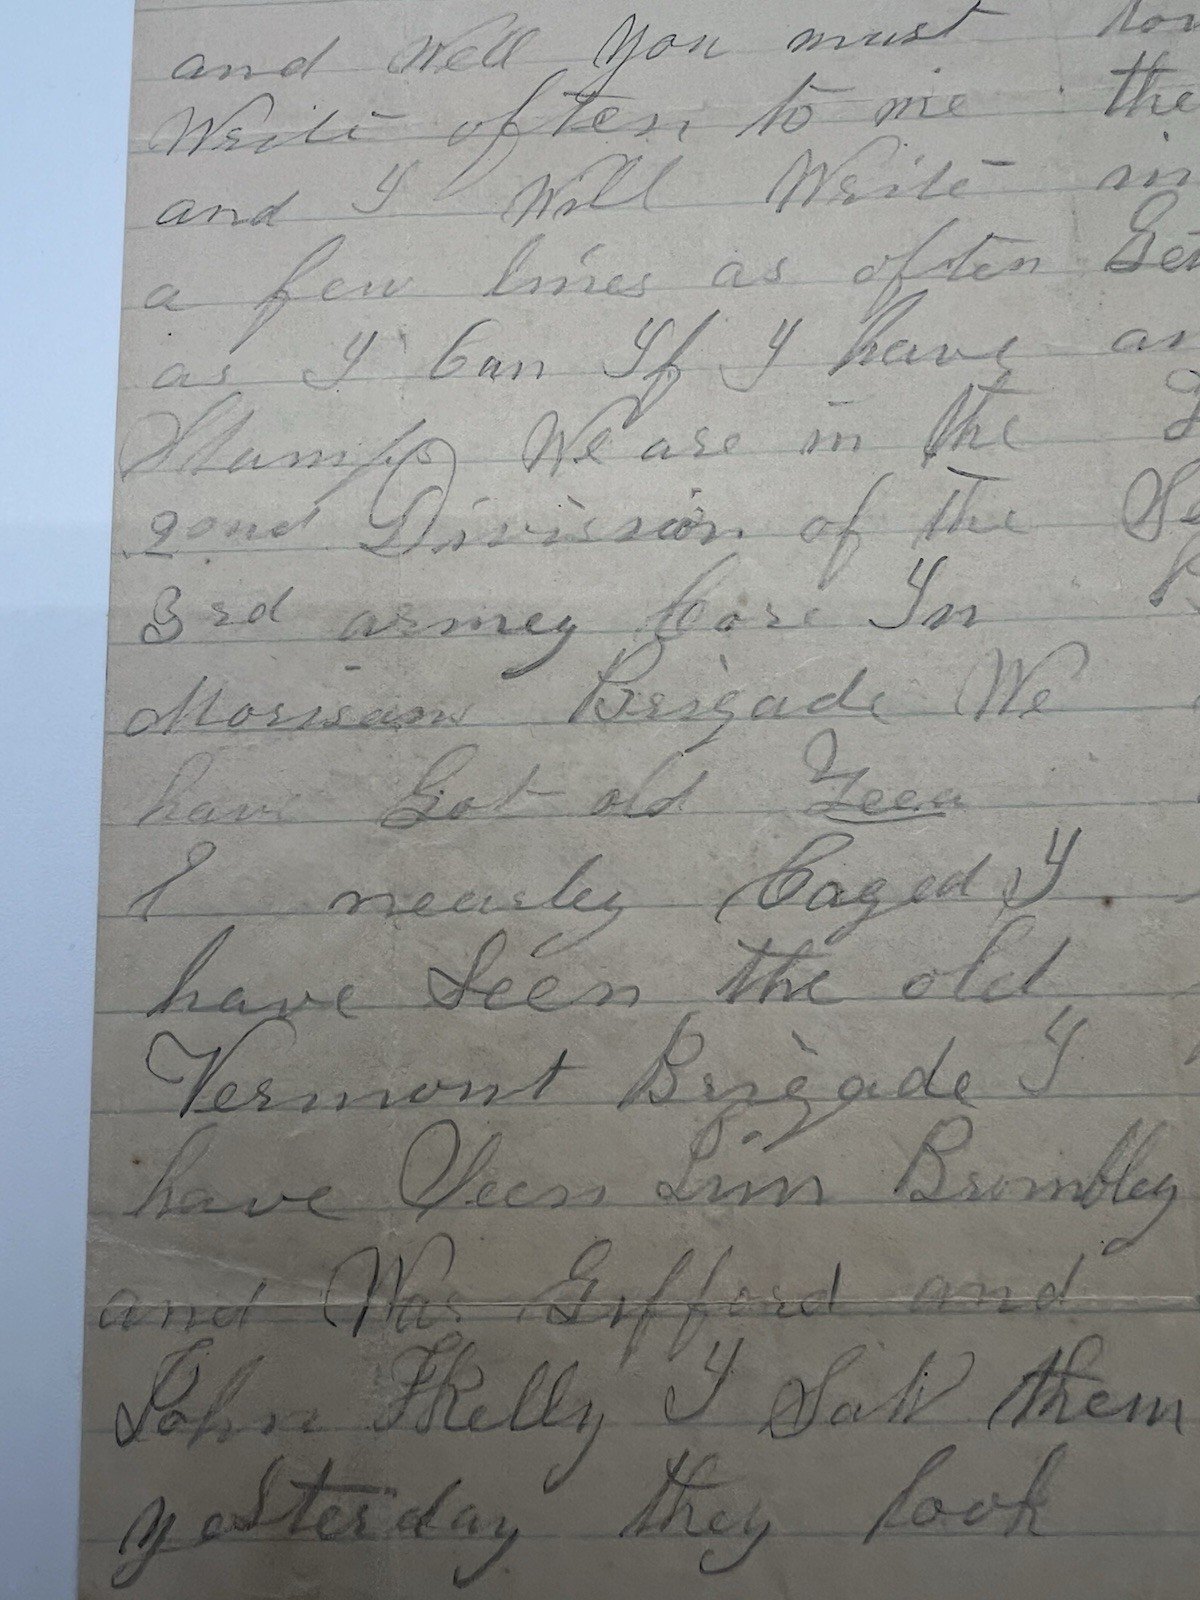 and Well you must
Write often to me the
and I Will Write in
a few lines as often Get
as I Can If I have an
Stamps We are in the
2ond Division of the
3rd armey Core In
Morisans Brigade We
have Got old Leea
I nearley Caged I
have Seen the old
Vermont Brigade I
have Seen Lim Brombley
and Was Gifford and
John Kelly I SaW them
yesterday they look